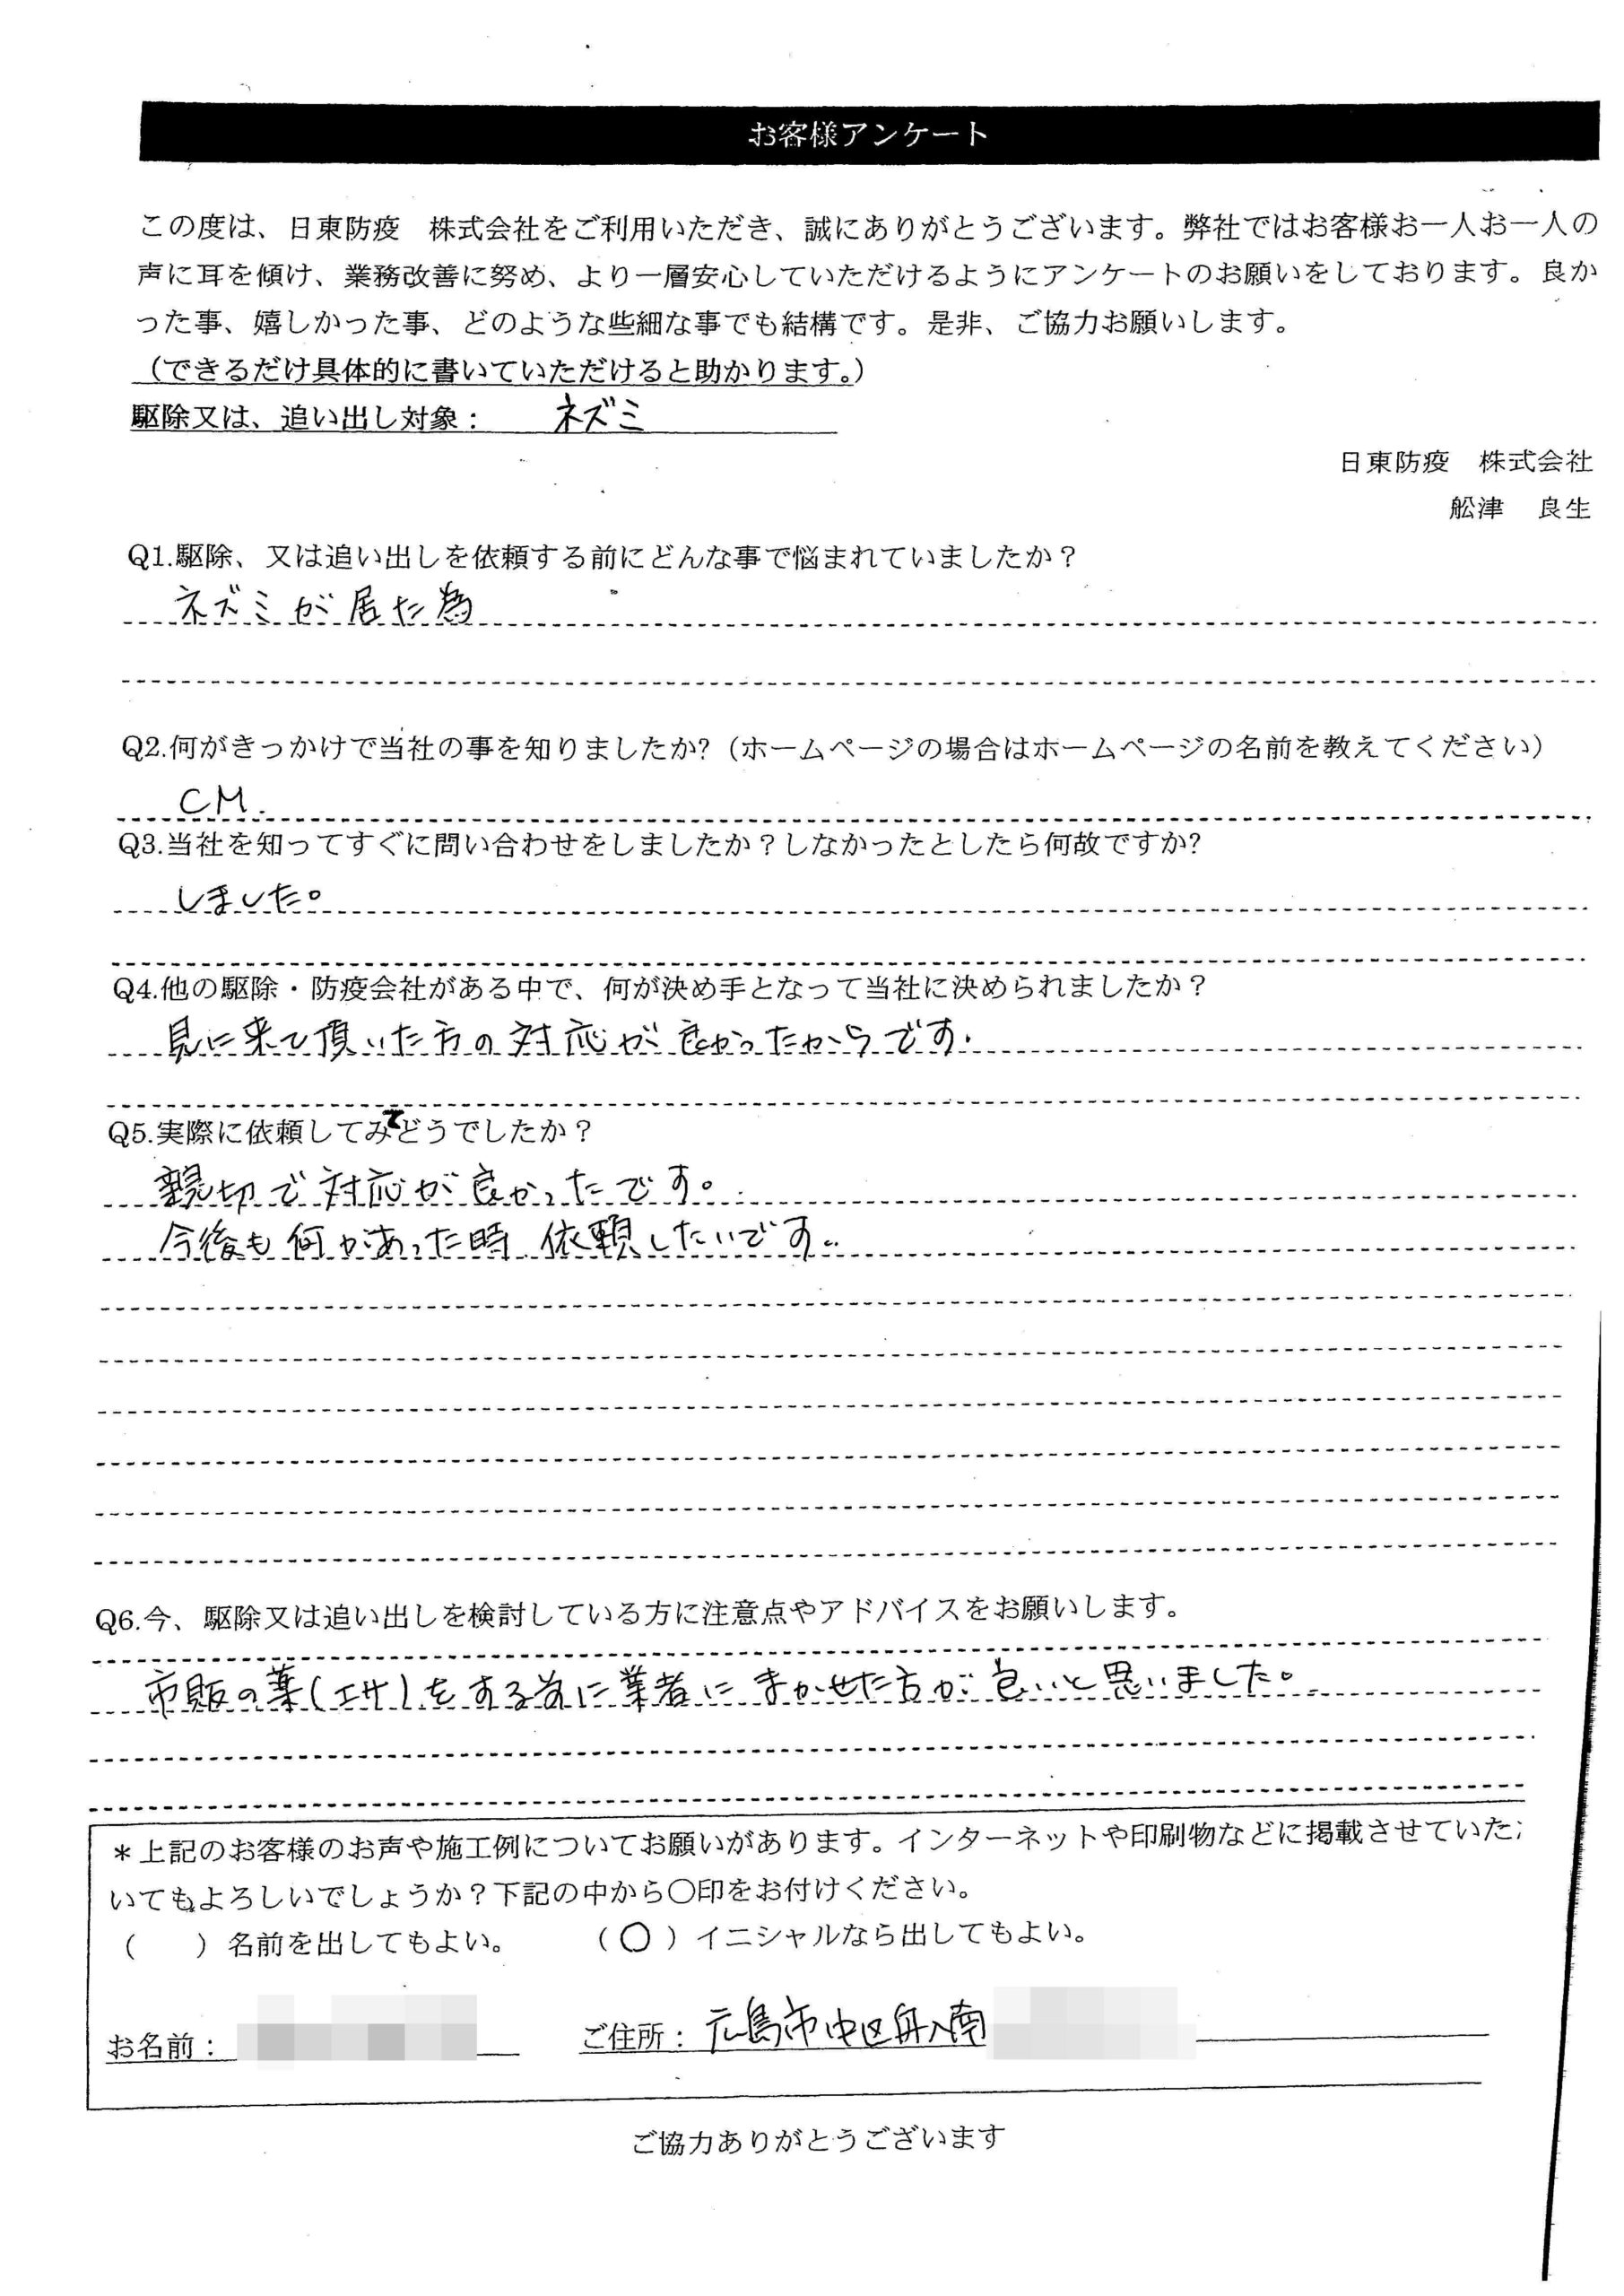 お客様アンケート
この度は、日東防疫 株式会社をご利用いただき、誠にありがとうございます。弊社ではお客様お一人お一人の
声に耳を傾け、業務改善に努め、より一層安心していただけるようにアンケートのお願いをしております。良か
った事、嬉しかった事、どのような些細な事でも結構です。是非、ご協力お願いします。
（できるだけ具体的に書いていただけると助かります。）
駆除又は、追い出し対象： ネズミ
日東防疫 株式会社
舩津 良生
Q1.駆除、又は追い出しを依頼する前にどんな事で悩まれていましたか？
ネズミが居た為
Q2.何がきっかけで当社の事を知りましたか?（ホームページの場合はホームページの名前を教えてください）
CM.
Q3.当社を知ってすぐに問い合わせをしましたか？しなかったとしたら何故ですか?
しました。
Q4.他の駆除・防疫会社がある中で、何が決め手となって当社に決められましたか？
見に来て頂いた方の対応が良かったからです.
Q5.実際に依頼してみてどうでしたか？
親切で対応が良かったです。
今後も何かあった時 依頼したいです。
Q6.今、駆除又は追い出しを検討している方に注意点やアドバイスをお願いします。
市販の薬(エサ)をする為に業者にまかせた方が良いと思いました。
＊上記のお客様のお声や施工例についてお願いがあります。インターネットや印刷物などに掲載させていた
いてもよろしいでしょうか？下記の中から〇印をお付けください。
（ ）名前を出してもよい。 （〇）イニシャルなら出してもよい。
お名前： ご住所：広島市中区舟入南
ご協力ありがとうございます